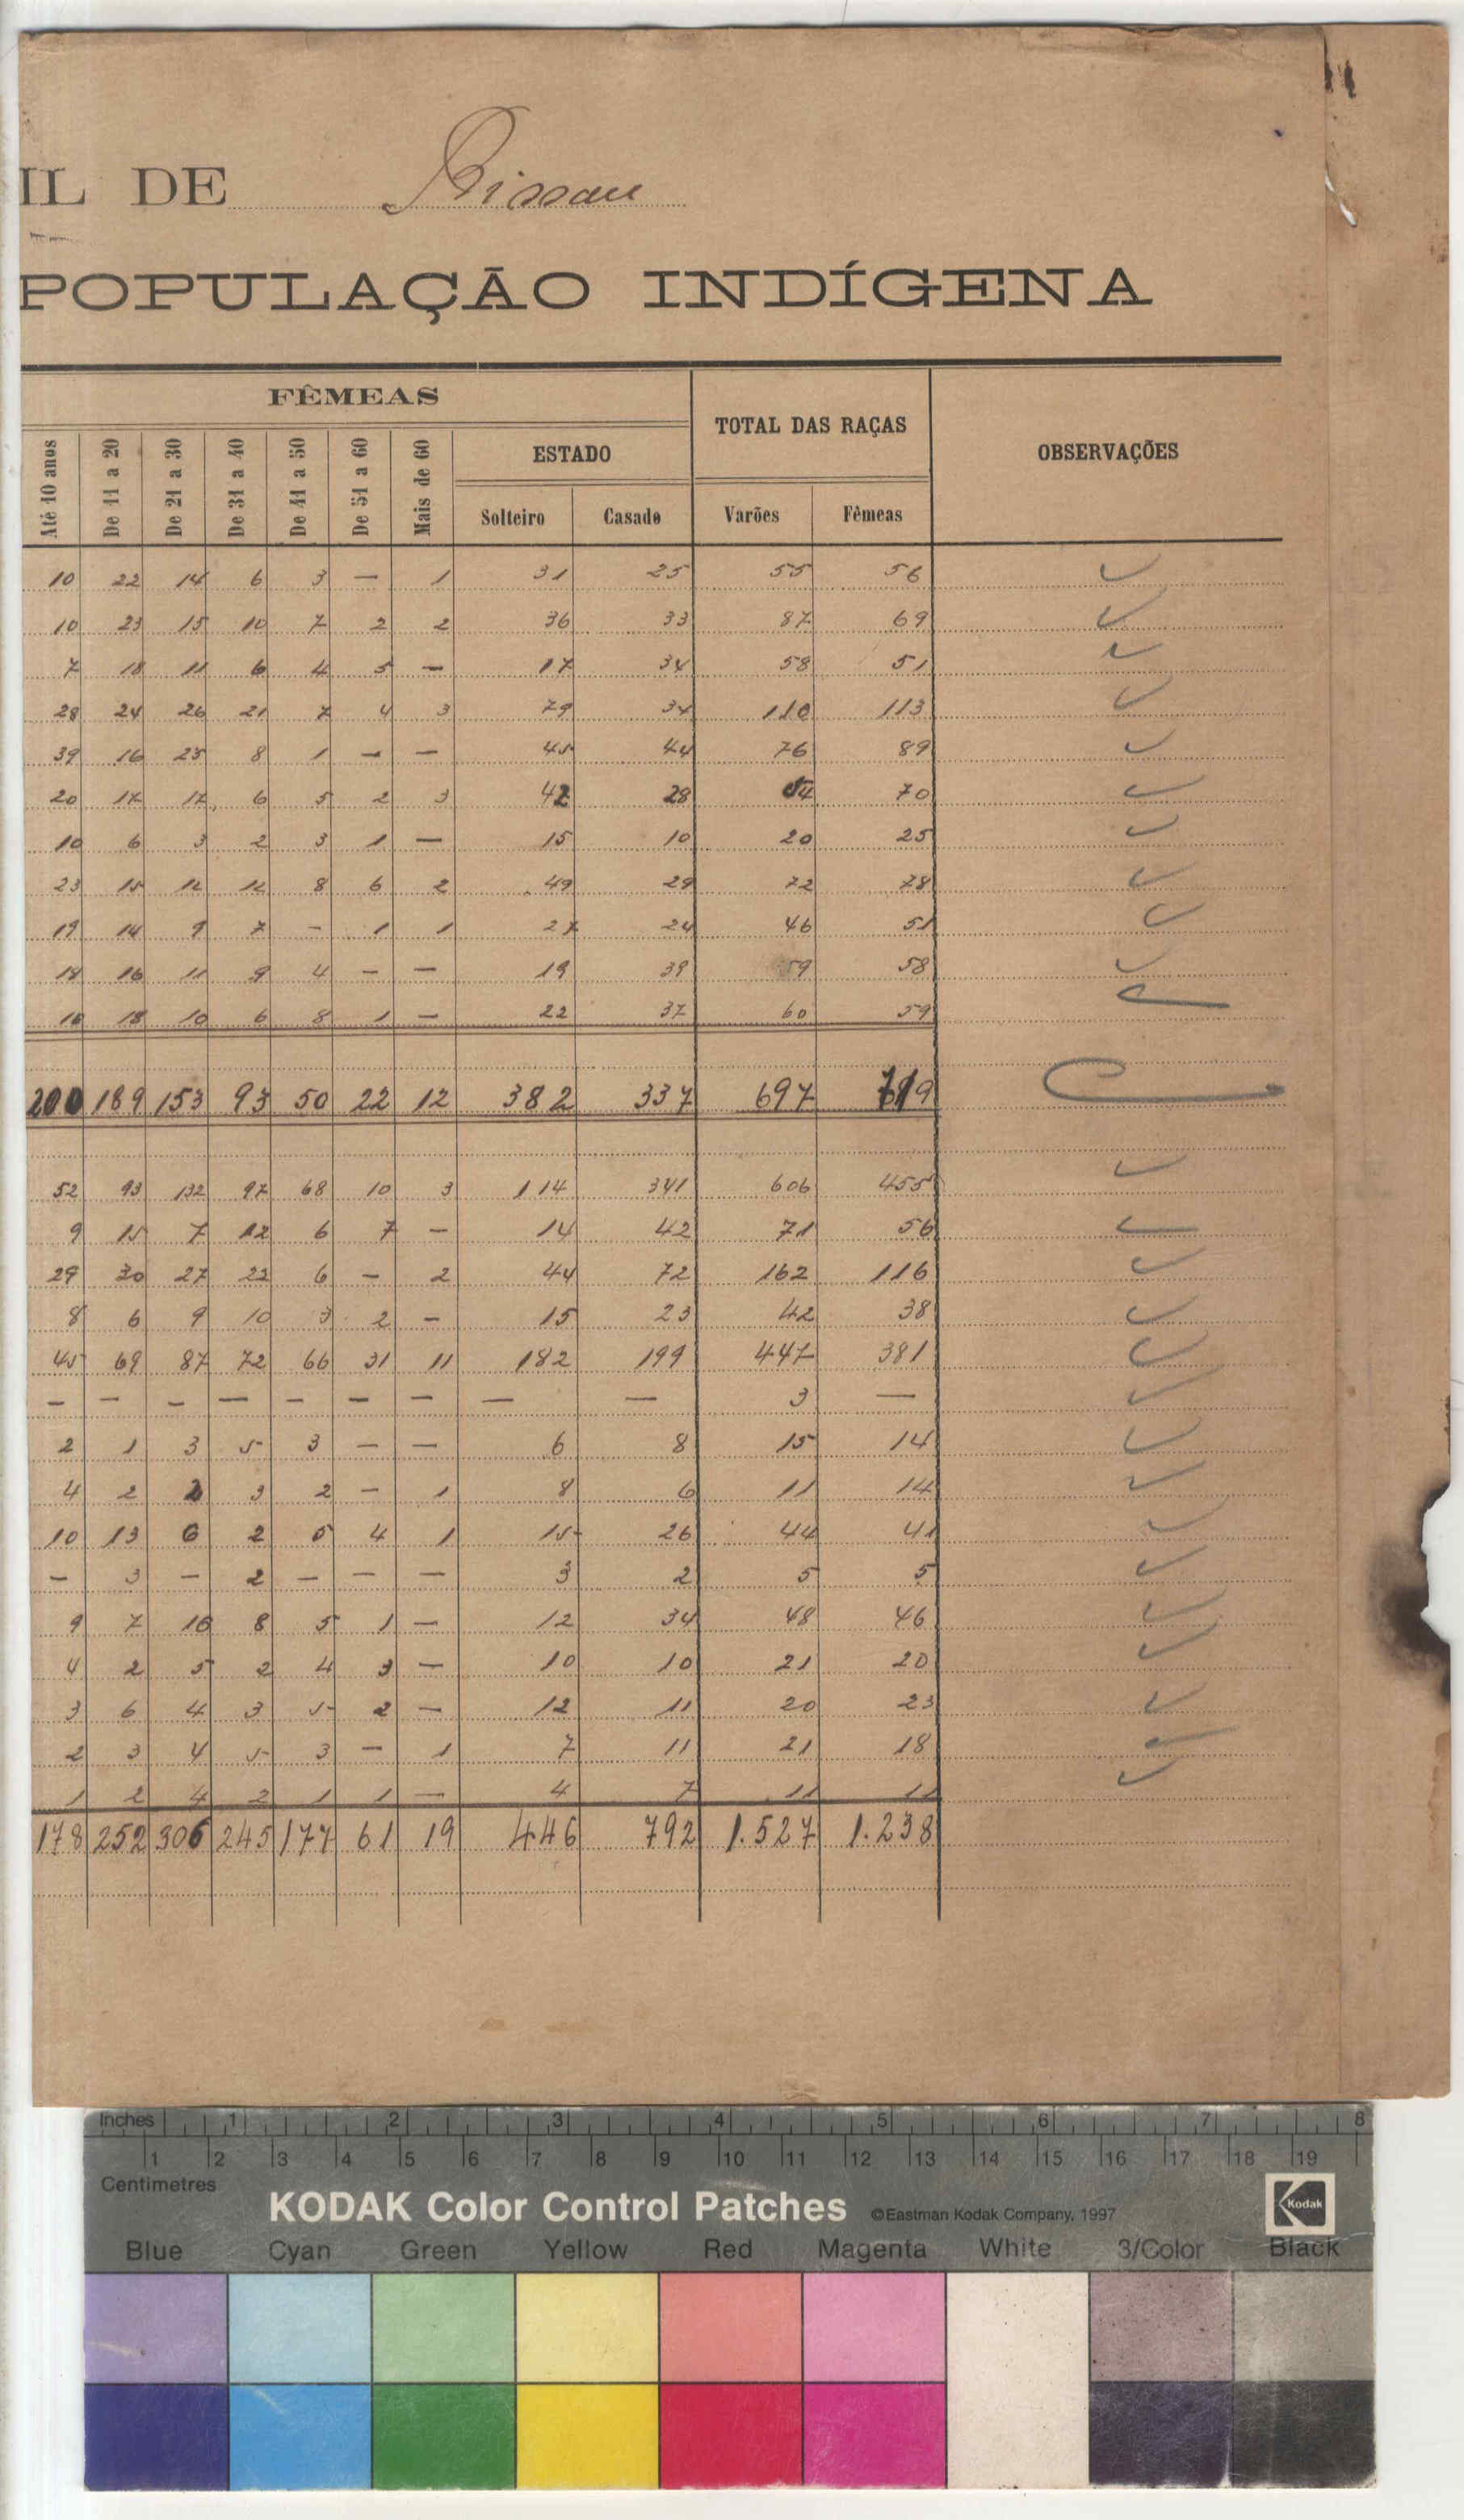 IL DE Bissau
POPULAÇÃO INDÍGENA
FÊMEAS
TOTAL DAS RAÇAS
OBSERVAÇÕES
ESTADO
Até 10 anos De 11 a 20 De 21 a 30 De 31 a 40 De 41 a 50 De 51 a 60 Mais de 60 Solteiro Casado Varões Fêmeas
10 22 14 6 3 — 1 31 25 55 56
10 23 15 10 7 2 2 36 33 87 69
7 18 11 6 4 5 — 17 34 58 51
28 24 26 21 7 4 3 79 34 110 113
39 16 25 8 1 — — 45 44 76 89
20 17 17 6 5 2 3 42 28 54 70
10 6 3 2 3 1 — 15 10 20 25
23 15 12 12 8 6 2 49 29 72 78
19 14 9 7 — 1 1 27 24 46 51
18 16 11 9 4 — — 19 39 59 58
16 18 10 6 8 1 — 22 37 60 59
200 189 153 93 50 22 12 382 337 697 719
52 93 132 97 68 10 3 114 341 606 455
9 15 7 12 6 7 — 14 42 71 56
29 30 27 22 6 — 2 44 72 162 116
8 6 9 10 3 2 — 15 23 42 38
45 69 87 72 66 31 11 182 199 447 381
— — — — — — — — — 3 —
2 1 3 5 3 — — 6 8 15 14
4 2 2 3 2 — 1 8 6 11 14
10 13 6 2 5 4 1 15 26 44 41
— 3 — 2 — — — 3 2 5 5
9 7 16 8 5 1 — 12 34 48 46
4 2 5 2 4 3 — 10 10 21 20
3 6 4 3 5 2 — 12 11 20 23
2 3 4 5 3 — 1 7 11 21 18
1 2 4 2 1 1 — 4 7 11 11
178 252 306 245 177 61 19 446 792 1.527 1.238
Inches 1 2 3 4 5 6 7 8
1 2 3 4 5 6 7 8 9 10 11 12 13 14 15 16 17 18 19
Centimetres
KODAK Color Control Patches ©Eastman Kodak Company, 1997 Kodak
Blue Cyan Green Yellow Red Magenta White 3/Color Black